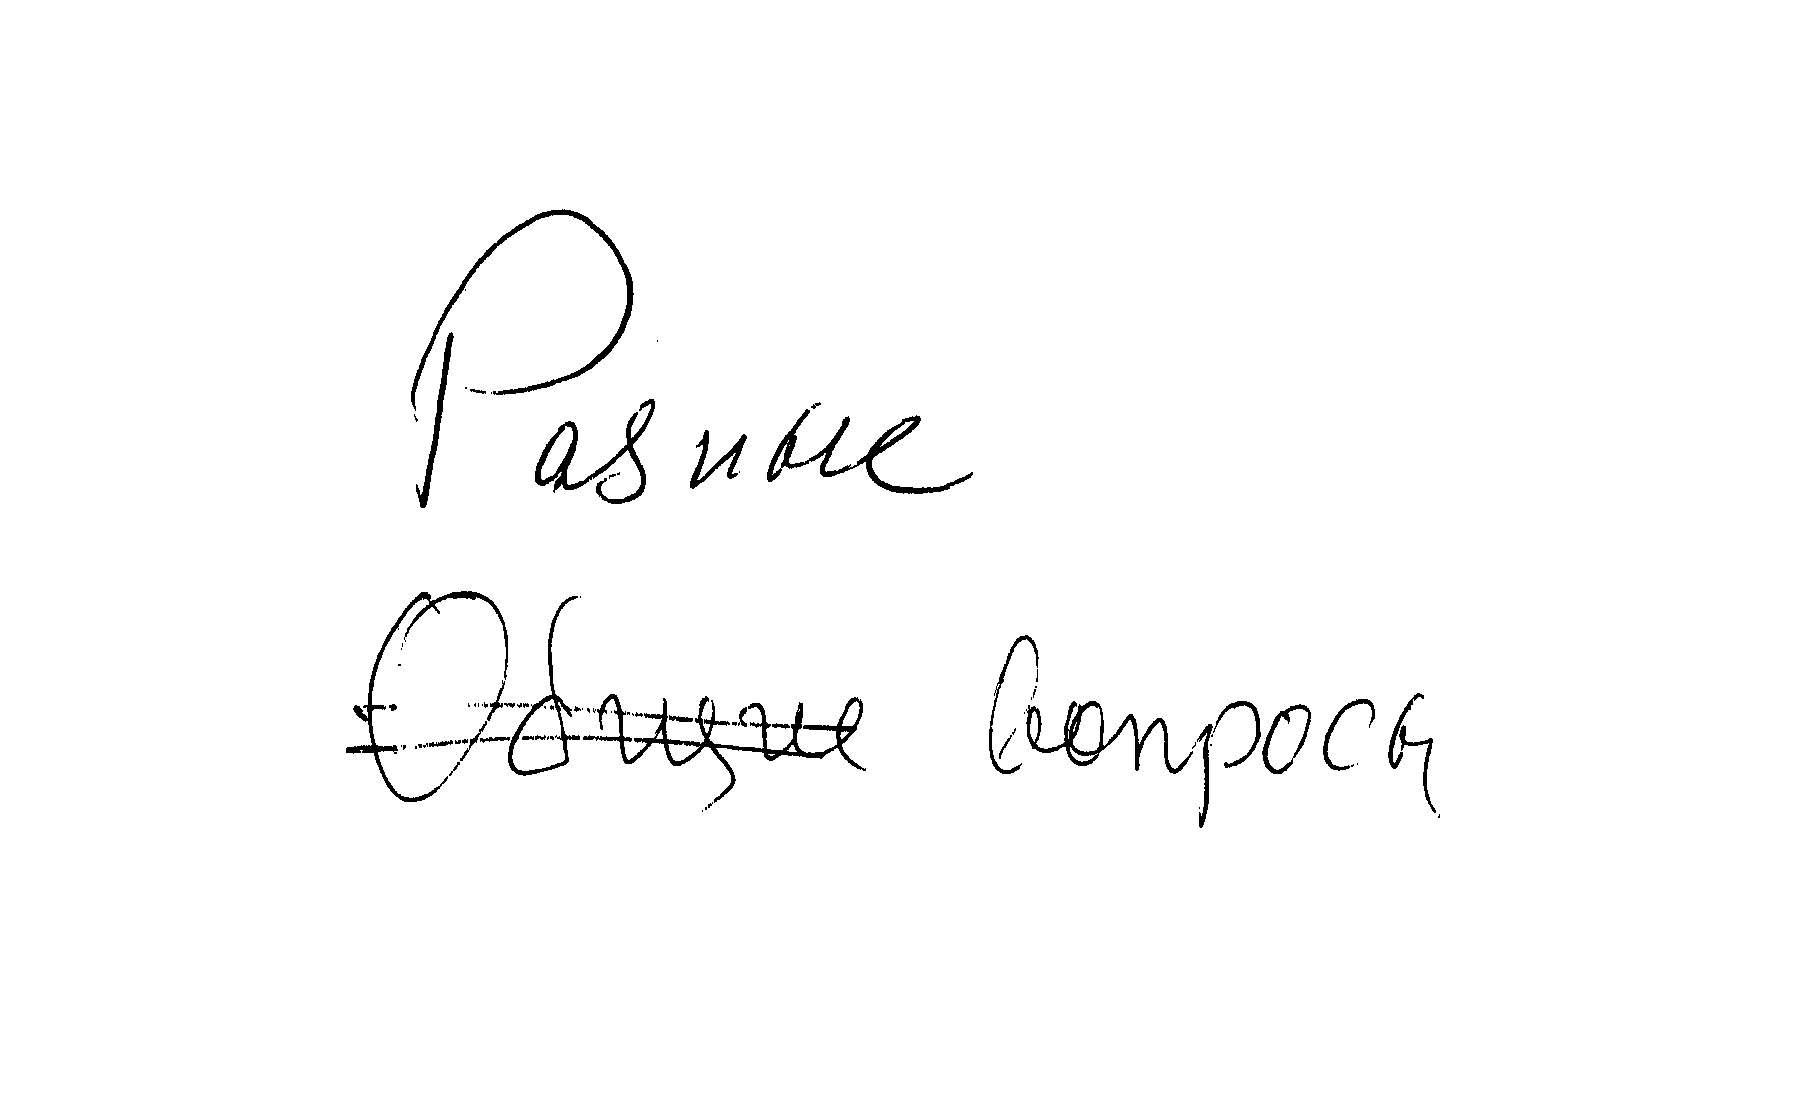 Разные
Общие вопросы